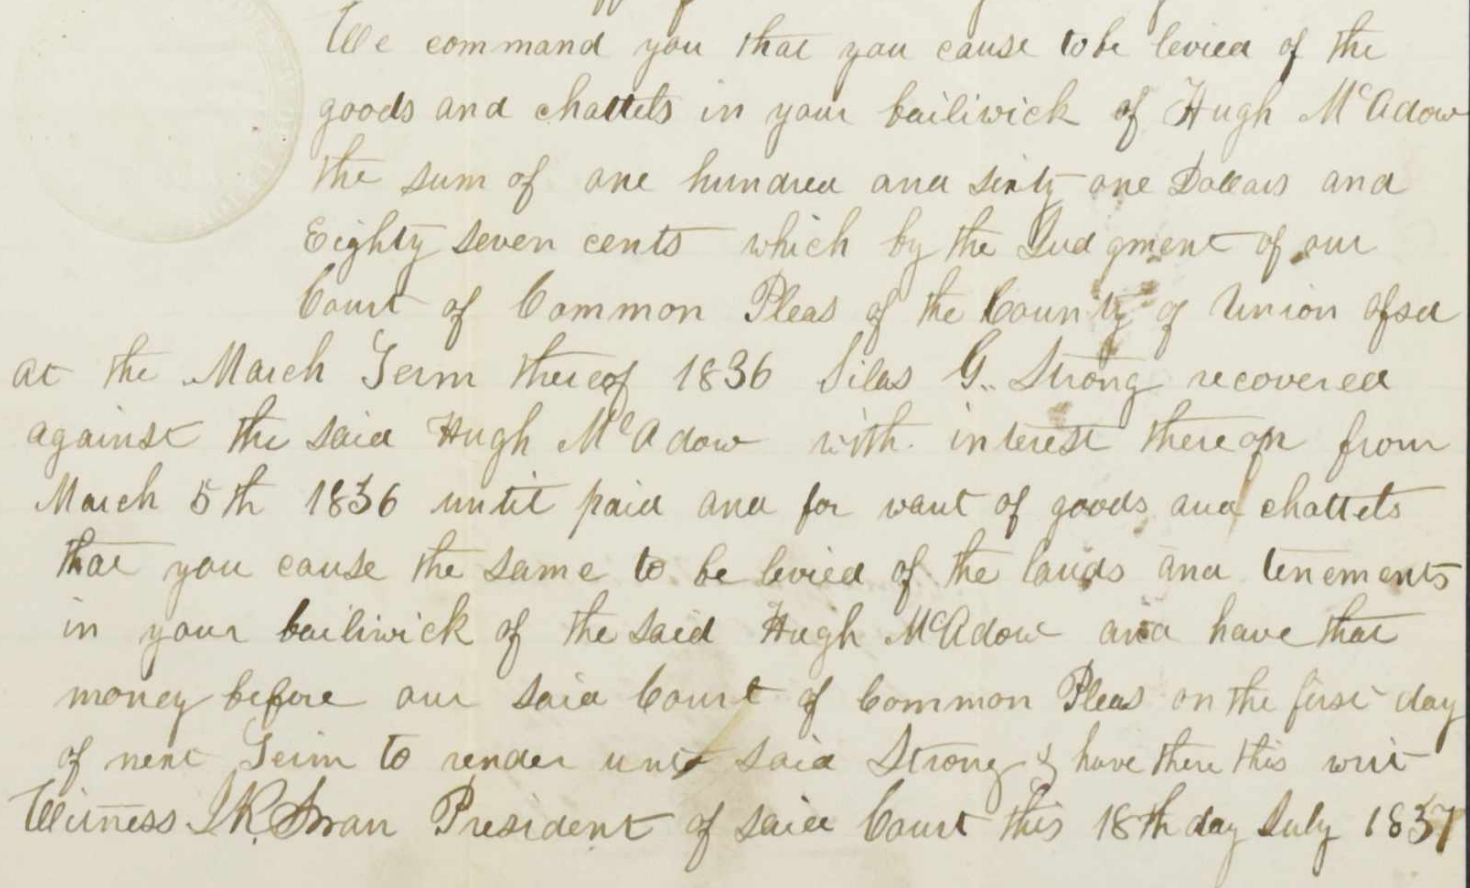 We command you that you cause to be levied of the
goods and chattels in your bailiwick of Hugh McAdow
the sum of one hundred and sixty one Dollars and
Eighty seven cents which by the Judgment of our
Court of Common Pleas of the County of Union ofsd
at the March Term thereof 1836 Silas G. Strong recovered
against the said Hugh McAdow with interest thereon from
March 5th 1836 until paid and for want of goods and chattels
that you cause the same to be levied of the lands and tenements
in your bailiwick of the said Hugh McAdow and have that
money before our said Court of Common Pleas on the first day
of next Term to render unto said Strong & have there this writ
Witness J R. Swan President of said Court this 18th day July 1837